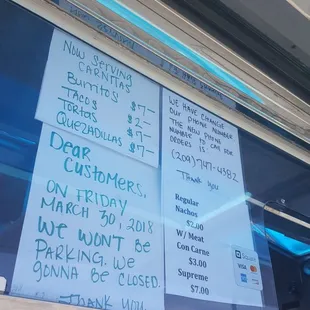 Now Serving
CARNITAS
Burritos $7-
Tacos $2-
Tortas $7-
Quezadillas $7-
Dear
Customers,
ON FRIDAY
MARCH 30, 2018
WE WON'T BE
PARKING. WE
GONNA BE CLOSED.
THANK YOU
WE HAVE CHANGE
OUR PHONE NUMBER
THE NEW PHONE
NUMBER TO CALL FOR
ORDERS IS
(209) 747-4382
THANK YOU
Regular
Nachos
$2.00
W/ Meat
Con Carne
$3.00
Supreme
$7.00
Square
VISA